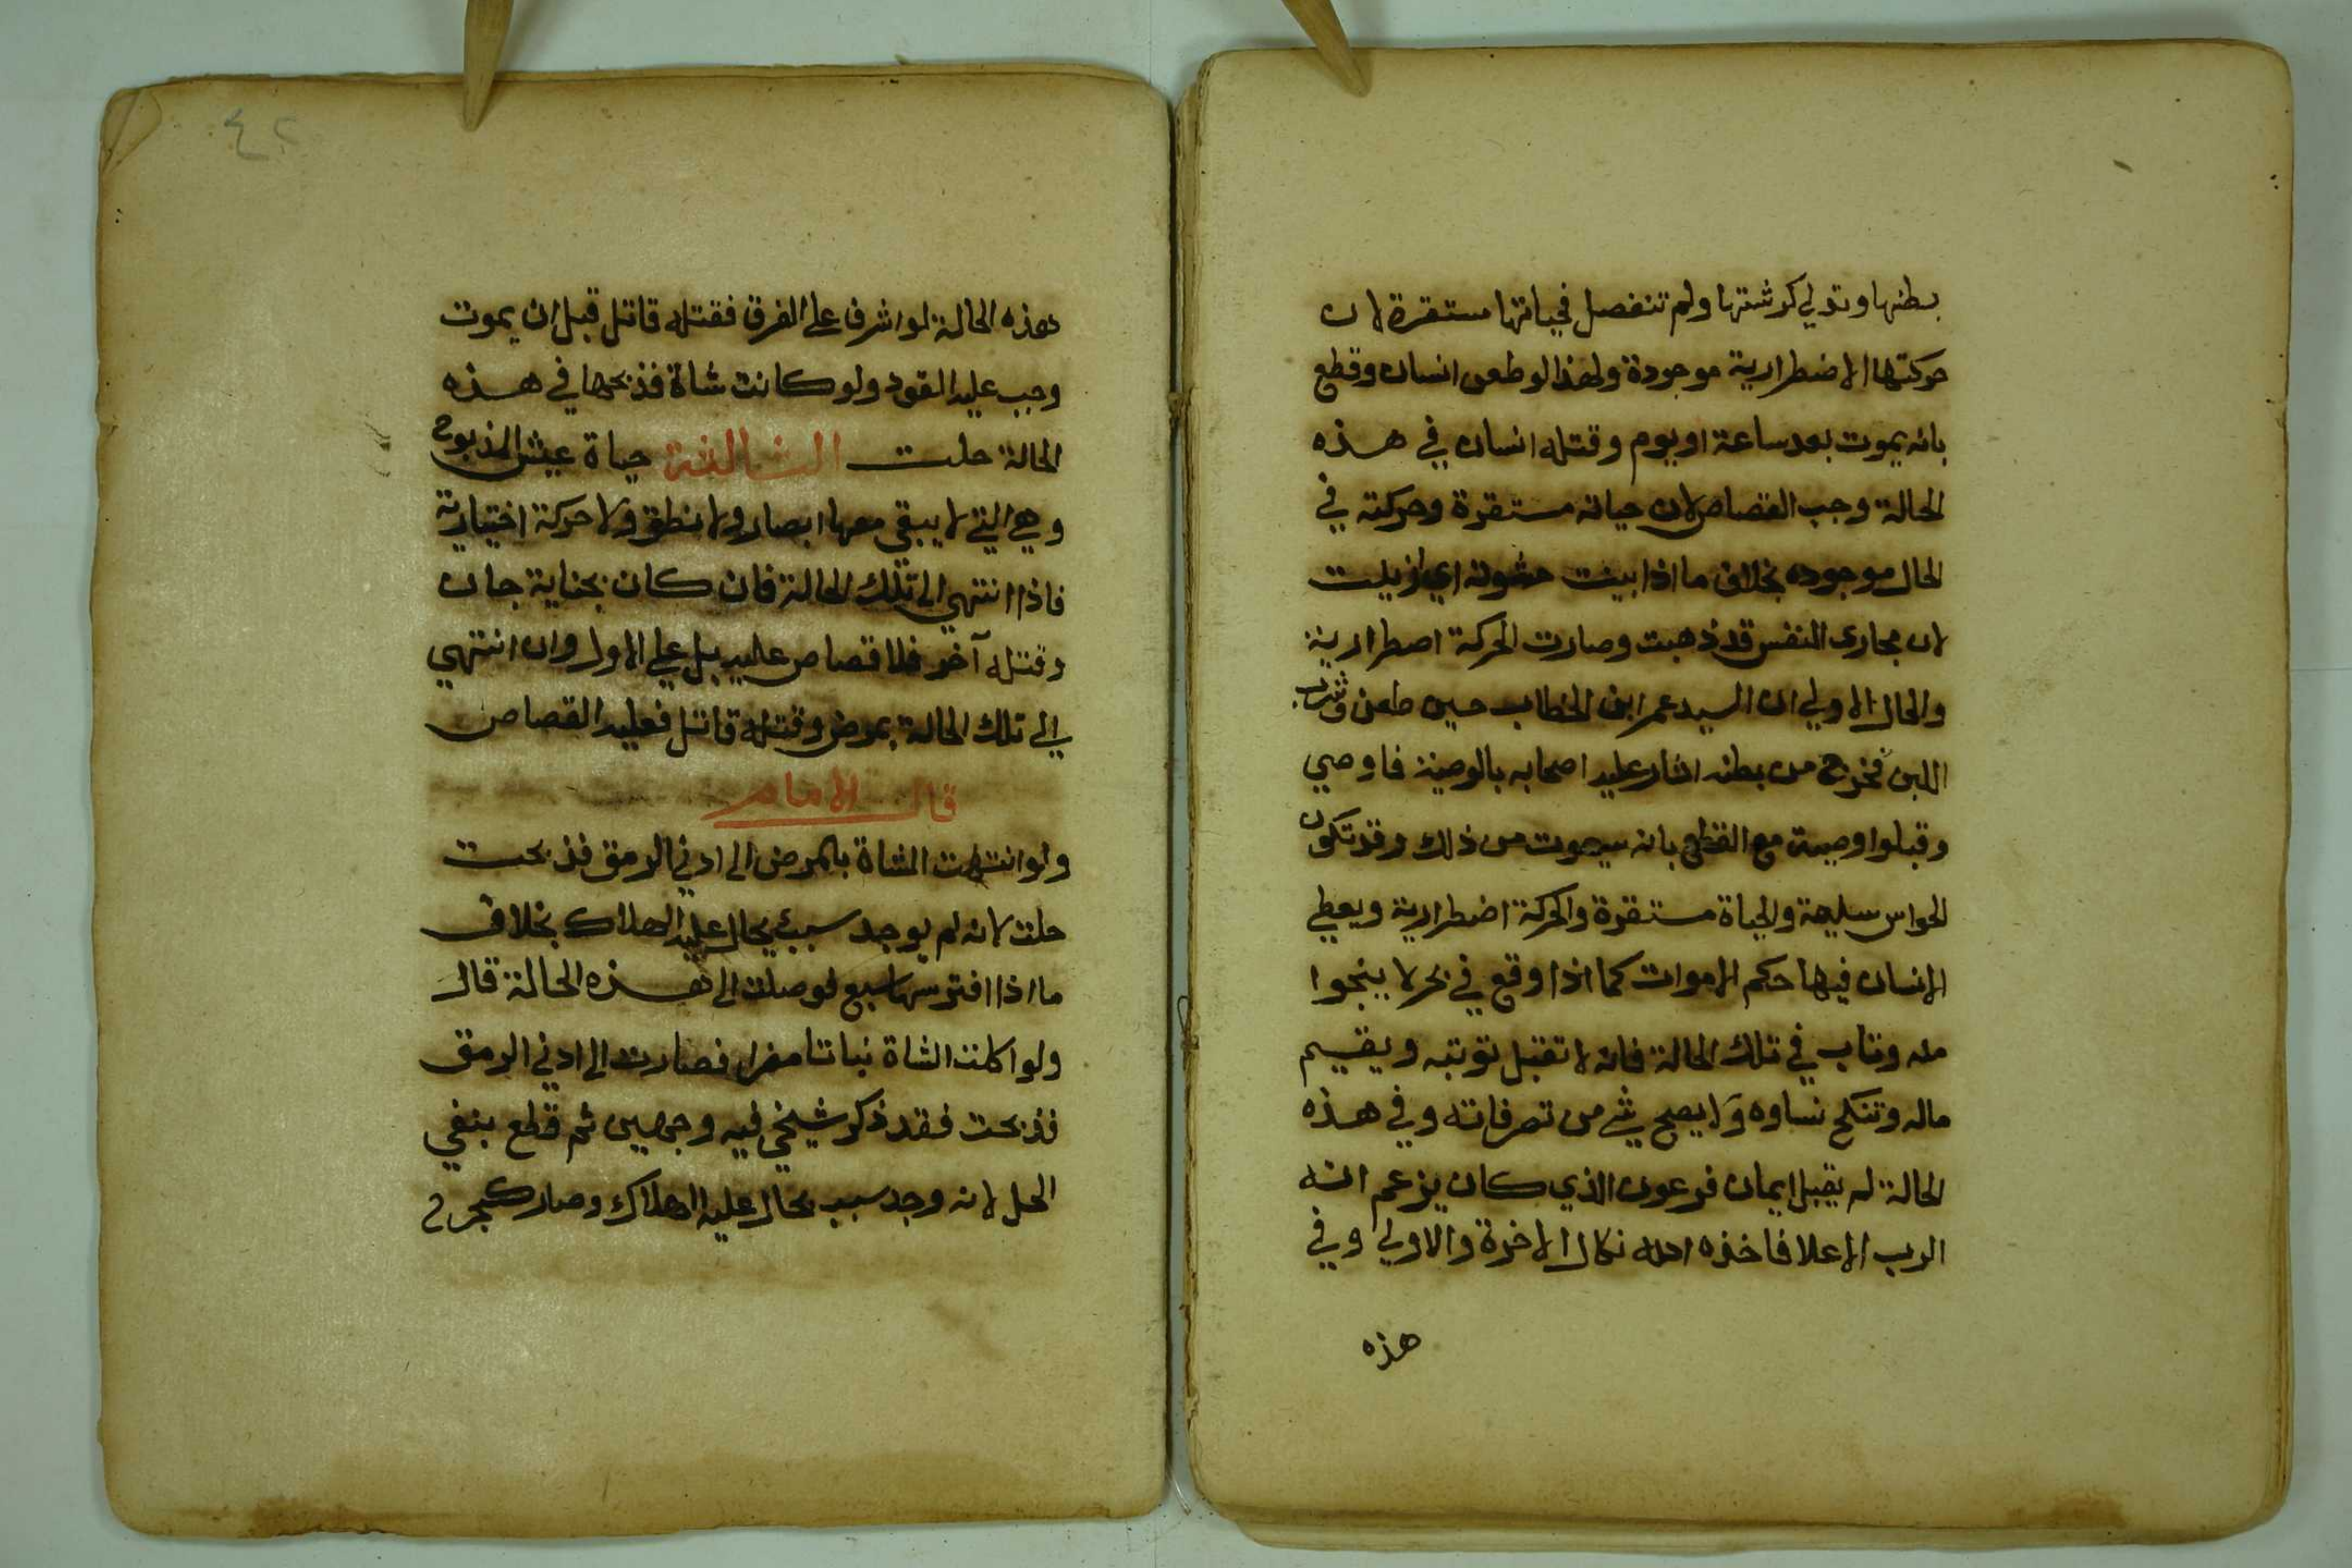 بطنها وتدلي كرشتها ولم تنفصل فحياتها مستقرة لان
حركتها الاضطرارية موجودة ولهذا لو طعن انسان وقطع
بانه يموت بعد ساعة او يوم وقتله انسان في هذه
الحالة وجب القصاص لان حياته مستقرة وحركته في
الحال موجوده بخلاف ما اذا ابينت حشوته اي ازيلت
لان مجاري النفس قد ذهبت وصارت الحركة اضطرارية
والحال الاولي ان السيد عمر ابن الخطاب حين طعن وشرب
اللبن فخرج من بطنه اشار عليه اصحابه بالوصية فاوصي
وقبلوا وصيته مع القطع بانه سيموت من ذلك وقد تكون
الحواس سليمة والحياة مستقرة والحركة اضطرارية ويعطي
الانسان فيها حكم الاموات كما اذا وقع في بحر لا ينجوا
منه وتاب في تلك الحالة فانه لا تقبل توبته ويقسم
ماله وتنكح نساوه ولا يصح شي من تصرفاته وفي هذه
الحالة لم يقبل ايمان فرعون الذي كان يزعم انه
الرب الاعلا فاخذه الله نكال الاخرة والاولي وفي
هذه
٤٢
هذه الحالة لو اشرف علي الغرق فقتله قاتل قبل ان يموت
وجب عليه القود ولو كانت شاة فذبحها في هذه
الحالة حلت الثالثة حياة عيش المذبوح
وهي التي لا يبقي معها ابصار ولا نطق ولا حركة اختيارية
فاذا انتهي الي تلك الحالة فان كان بجناية جان
وقتله آخر فلا قصاص عليه بل علي الاول وان انتهي
الي تلك الحالة بمرض وقتله قاتل فعليه القصاص
قال الامام
ولو انتهت الشاة بالمرض الي ادني الرمق فذبحت
حلت لانه لم يوجد سبب يحال عليه الهلاك بخلاف
ما اذا افترسها سبع فوصلت الي هذه الحالة قال
ولو اكلت الشاة نباتا مضرا فصارت الي ادني الرمق
فذبحت فقد ذكر شيخي فيه وجهين ثم قطع بنفي
الحل لانه وجد سبب يحال عليه الهلاك وصار كجرح